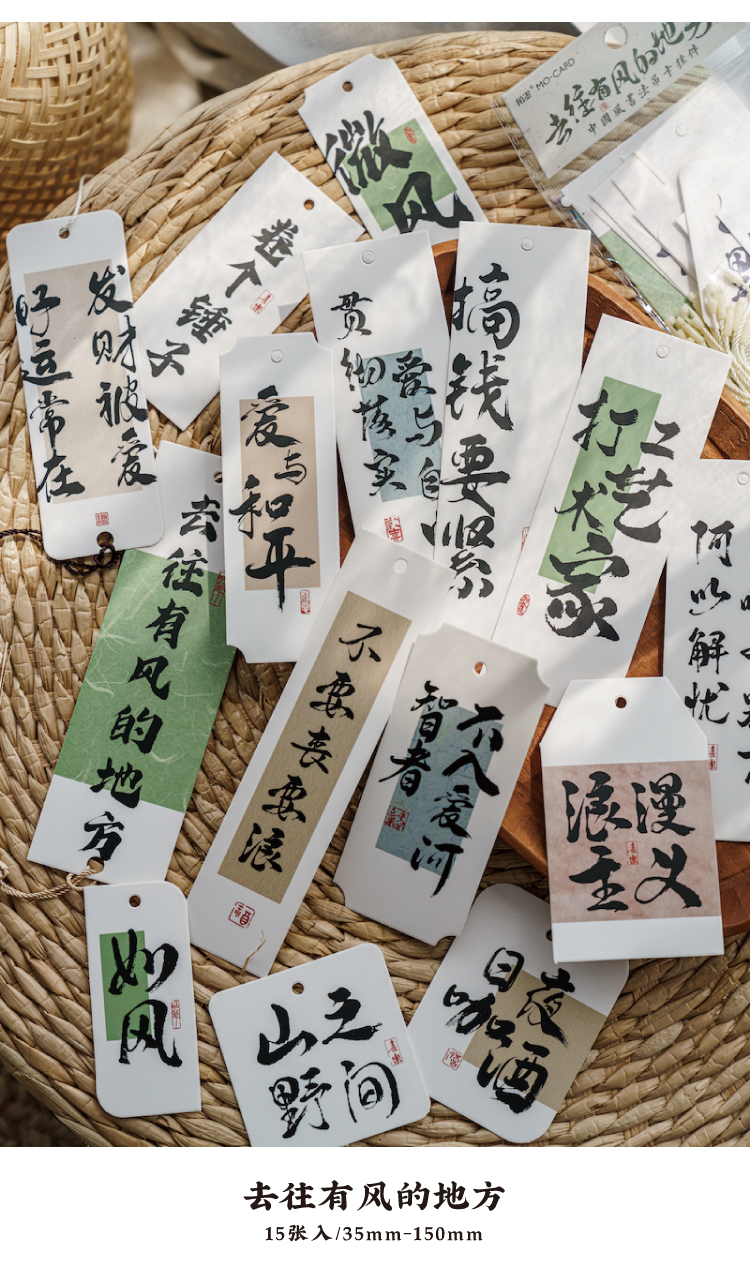 MO-CARD
去往有风的地方
中國風書法吊卡挂件
微风
卷个锤子
发财被爱
好运常在
贯彻落实
爱与自
搞钱要紧
爱与和平
打工艺术家
何以解忧
去往有风的地方
不要丧要浪
智者
不入爱河
浪漫
主义
如风
山野
之间
日咖
夜酒
福
去往有风的地方
15张入/35mm-150mm